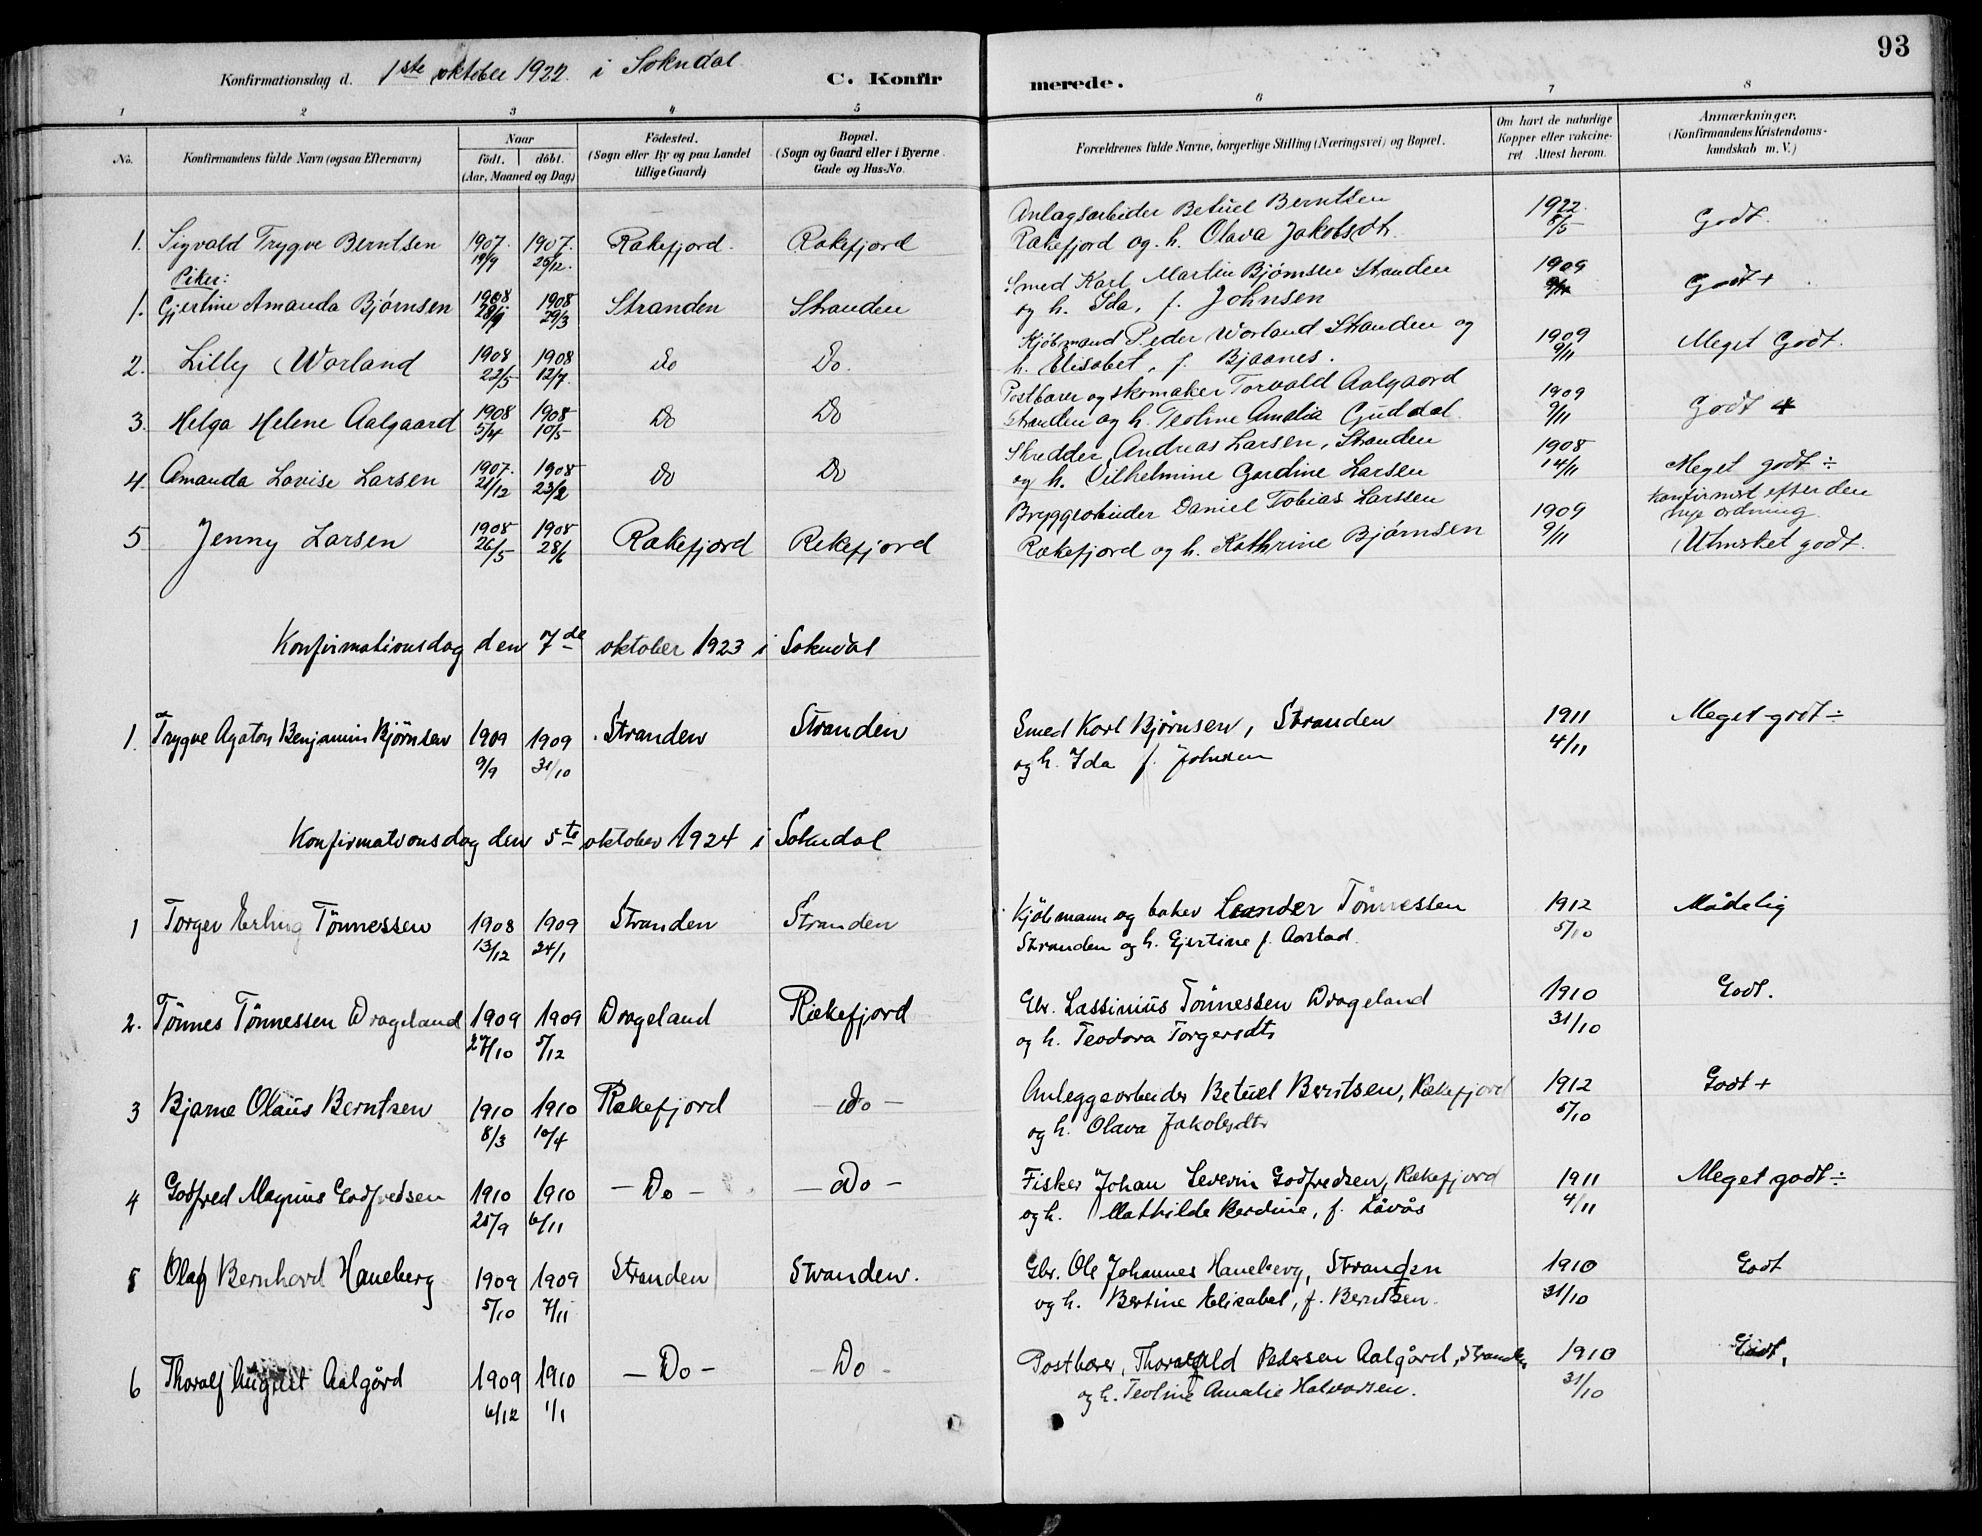 93
Konfirmationsdag d. 1ste oktober 1922 i Sokndal
C. Konfirmerede.
1 2 3 4 5 6 7 8
No. Konfirmandens fulde Navn (ogsaa Efternavn) Naar födt. döbt. (Aar, Maaned og Dag) Födested. (Sogn eller By og paa Landet tillige Gaard) Bopæl. (Sogn og Gaard eller i Byerne Gade og Hus-No. Forældrenes fulde Navne, borgerlige Stilling (Næringsvei) og Bopæl. Om havt de naturlige Kopper eller vakcineret Attest herom. Anmærkninger. (Konfirmandens Kristendomskundskab m. V.)
1. Sigvald Trygve Berntsen 1907. 19/9 1907. 26/12. Rækefjord. Rækefjord Anlægsarbeider Betuel Berntsen 1922. 8/5 Godt.
Rækefjord og h. Olava Jakobsdtr
Piker:
1. Gjertine Amanda Bjørnsen 1908 28/1 1908 29/3 Stranden Stranden Smed Karl Martin Bjørnsen Stranden 1909 9/11 Godt +
og h. Ida, f. Johnsen
2. Lilly Worland 1908 22/5 1908 12/7 Do Do. Kjøbmand Peder Worland Stranden og 1909 9/11 Meget Godt.
h. Elisabet, f. Bjaanes.
3. Helga Helene Aalgaard 1908 5/4 1908 10/5 Do Do Postbærer og skomaker Torvald Aalgaard 1909 9/11 Godt +
Stranden og h. Teoline Amalia Guddal
4. Amanda Lovise Larsen 1907. 21/12 1908 23/2 Do Do Skredder Andreas Larsen, Stranden 1908 14/11 Meget godt ÷
og h. Vilhelmine Gardine Larsen
5 Jenny Larsen 1908 26/5 1908 28/6 Rækefjord Rekefjord Bryggearbeider Daniel Tobias Larssen 1909 9/11 Konfirmert efter den nye ordning. Utmerket godt.
Rækefjord og h. Kathrine Bjørnsen
Konfirmationsdag den 7de oktober 1923 i Sokndal
1. Trygve Agaton Benjamin Bjørnsen 1909 9/9 1909 31/10 Stranden Stranden Smed Karl Bjørnsen, Stranden 1911 4/11 Meget godt ÷
og h. Ida f. Johnsen
Konfirmationsdag den 5te oktober 1924 i Sokndal
1 Torger Erling Tönnessen 1908 13/12 1909 24/1 Stranden Stranden Kjöbmann og baker Leander Tönnessen 1912 5/10 Mådelig
Stranden og h. Gjertine f. Aarstad.
2. Tönnes Tönnessen Drageland 1909 27/10 1909 5/12 Drageland Rækefjord Gbr. Lassinius Tönnessen Drageland 1910 31/10 Godt.
og h. Teodora Torgersdtr
3 Bjarne Olaus Berntsen 1910 8/3 1910 10/4 Rækefjord - Do - Anleggsarbeider Betuel Berntsen, Rækefjord 1912 5/10 Godt +
og h. Olava Jakobsdtr
4 Godfred Magnus Godfredsen 1910 25/9 1910 6/11 - Do - - Do - Fisker Johan Severin Godfredsen, Rækefjord 1911 4/11 Meget godt ÷
og h. Mathilde Berdine, f. Låvås
5 Olaf Bernhard Haneberg 1909 5/10 1909 7/11 Stranden Stranden. Gbr. Ole Johannes Haneberg, Stranden 1910 31/10 Godt
og h. Bertine Elisabet, f. Berntsen.
6 Thoralf August Aalgård 1909 6/12 1910 1/1 - Do - - Do - Postbærer, Thorvald Pedersen Aalgård, Stranden 1910 31/10 Godt.
og h. Teoline Amalie Halvorsen.